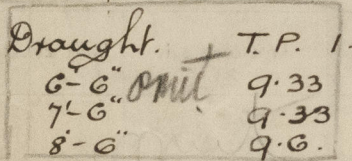 Draught. T. P. 1.
6'-6" omit 9.33
7'-6" 9.33
8'-6" 9.6.